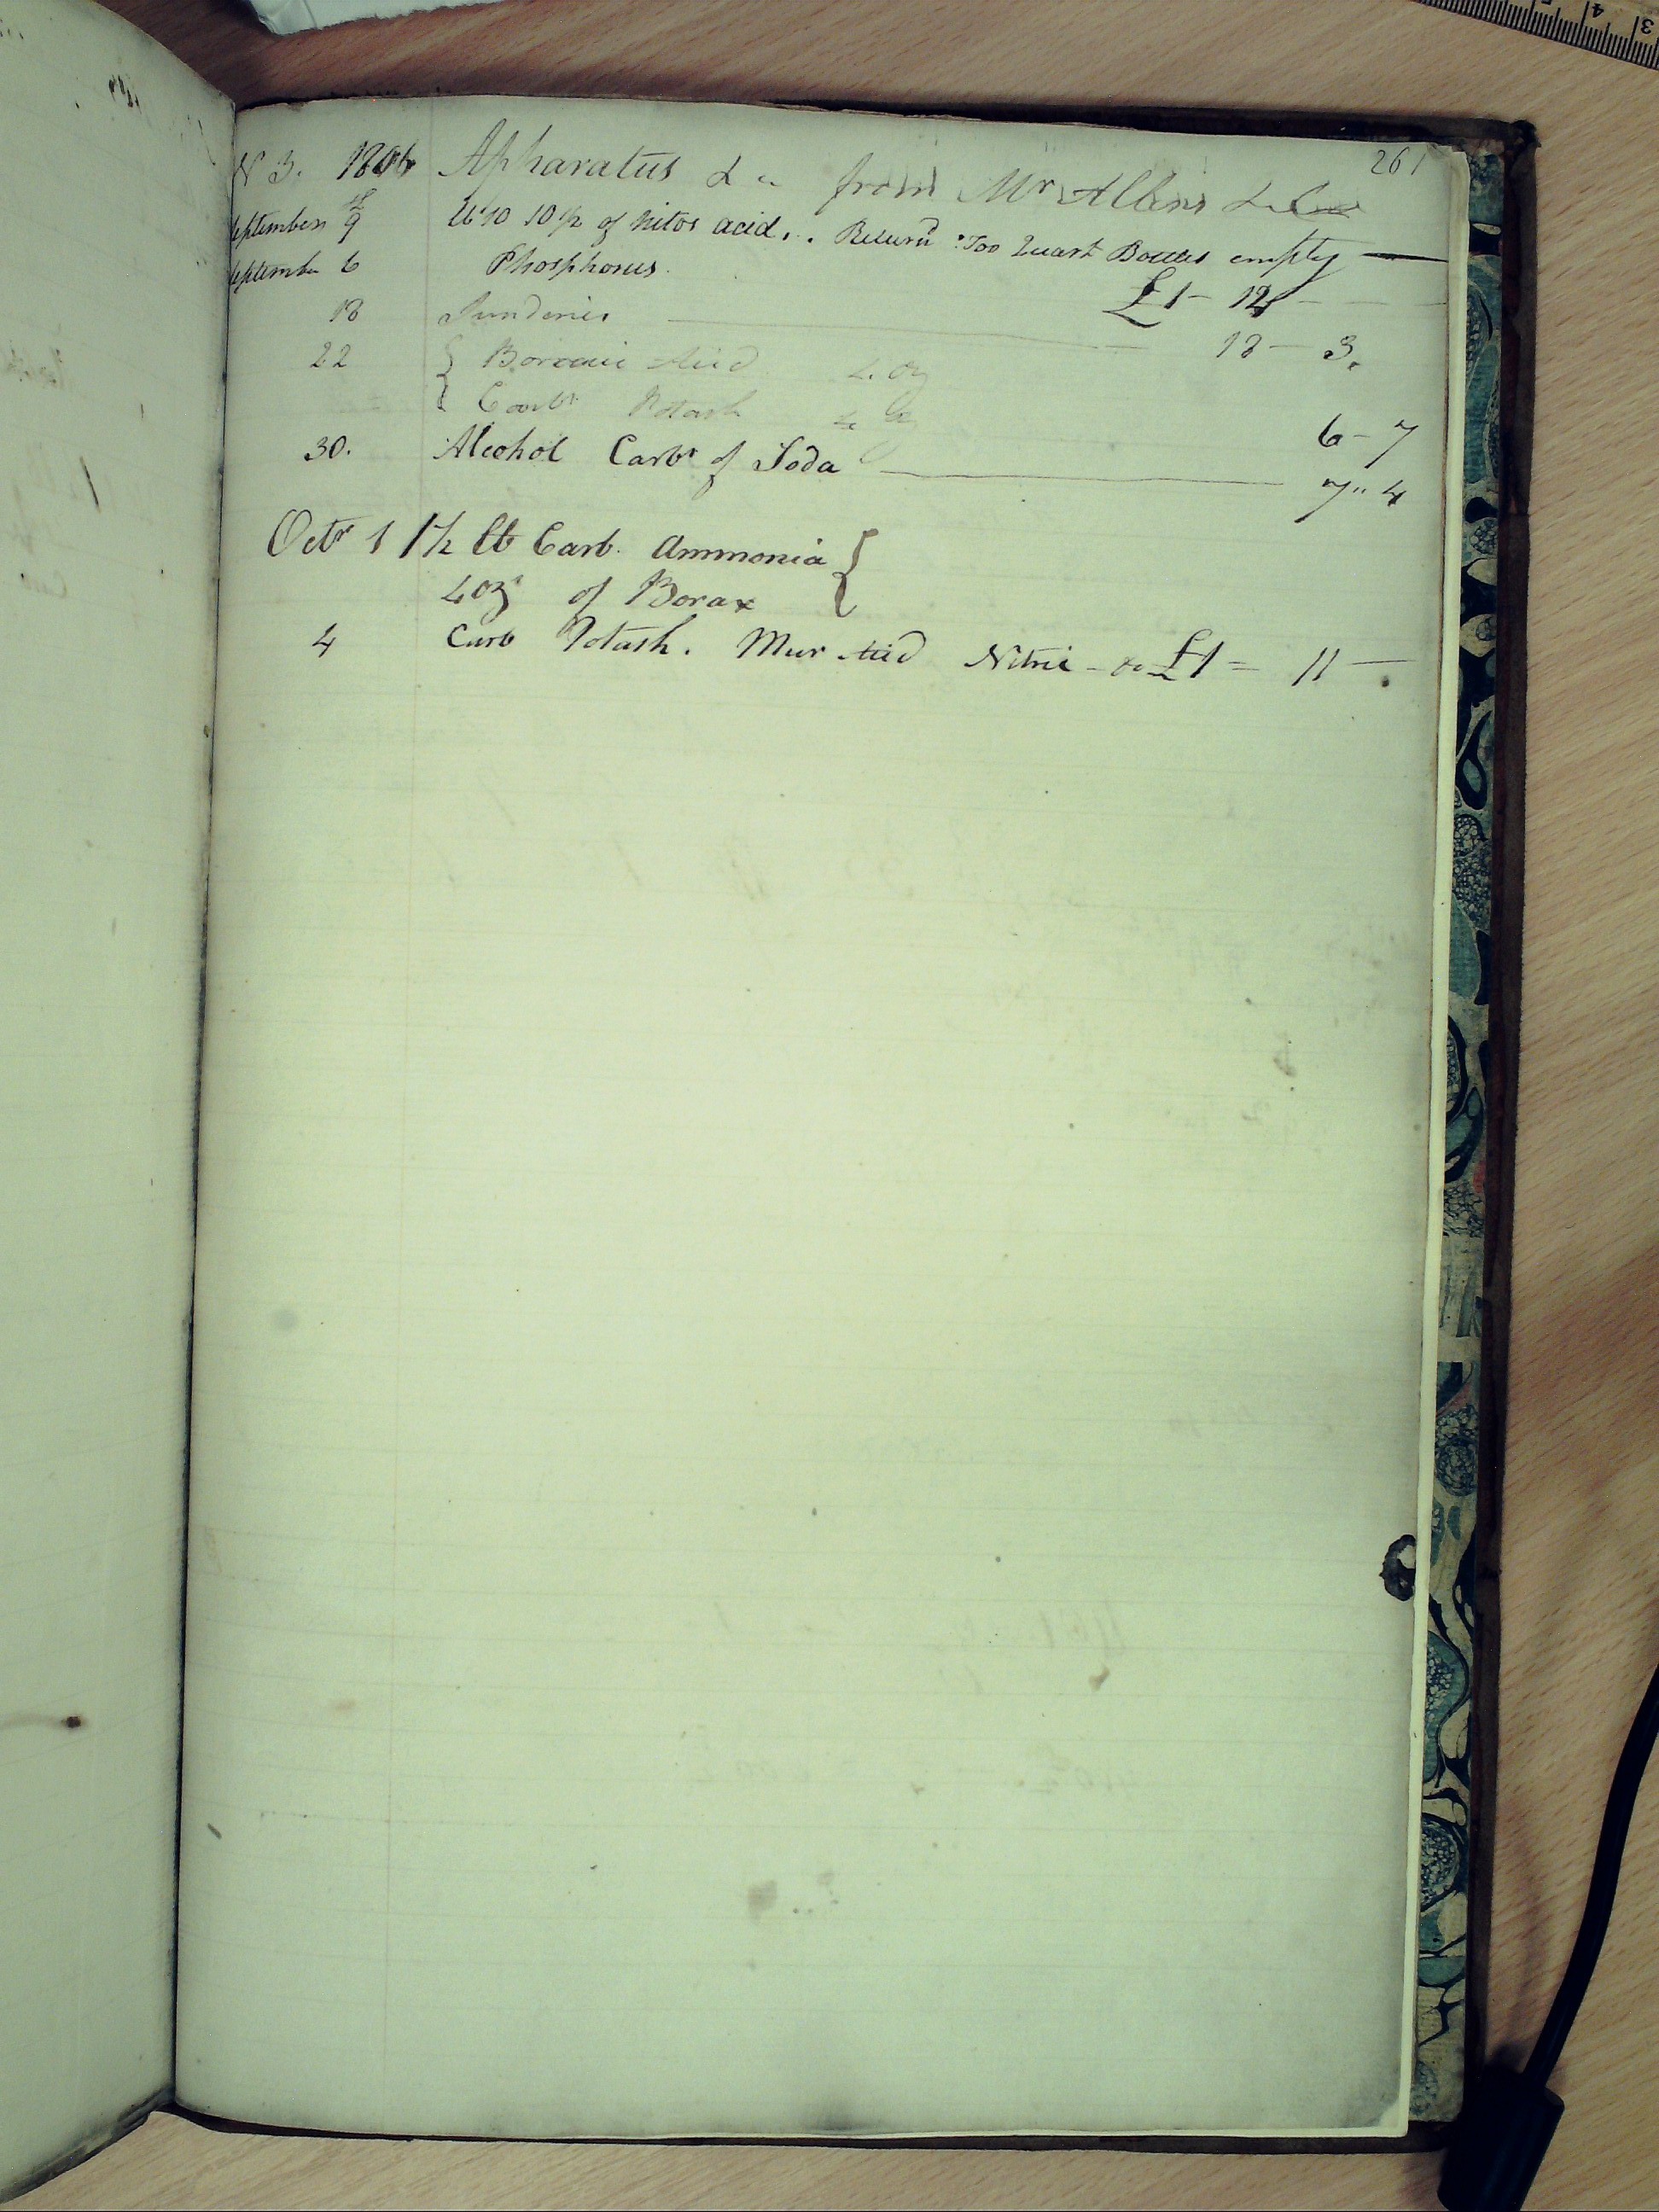 261
N 3. 1806 Apharatus & c from Mr Allens & Co
September 9 lb 10 10 1/2 of Nitos acid,. Returnd Too Quart Bottles empty —
September 6 Phosphorus. £1 - 12 - -
18 Sunderies — 18 - 3.
22 { Boracic Acid 4. oz
{ Carbt Potash 4 oz 6 - 7
30. Alcohol Carbt of Soda — 7" 4
Octr 1 1 1/2 lb Carb. Ammonia {
4 ozs of Borax
4 Carb Potash. Mur Acid Nitric - &c £1 = 11 —